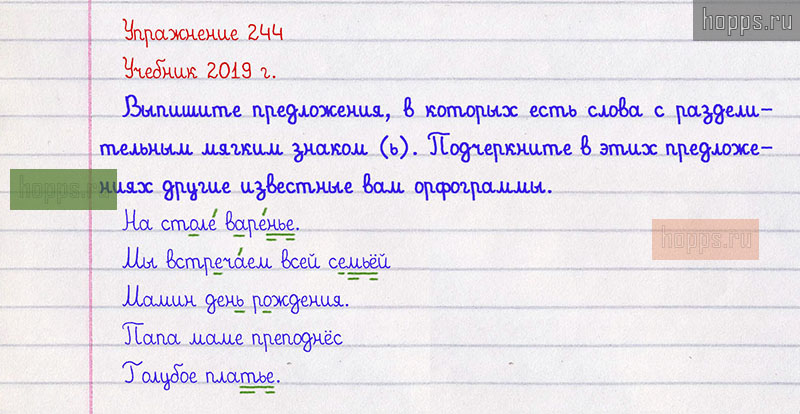 hopps.ru
Упражнение 244
Учебник 2019 г.
Выпишите предложения, в которых есть слова с раздели-
тельным мягким знаком (ь). Подчеркните в этих предложе-
ниях другие известные вам орфограммы.
hopps.ru
На столе́ варе́нье.
hopps.ru
Мы встреча́ем всей семьёй
Мамин день рождения.
Папа маме преподнёс
Голубое платье.